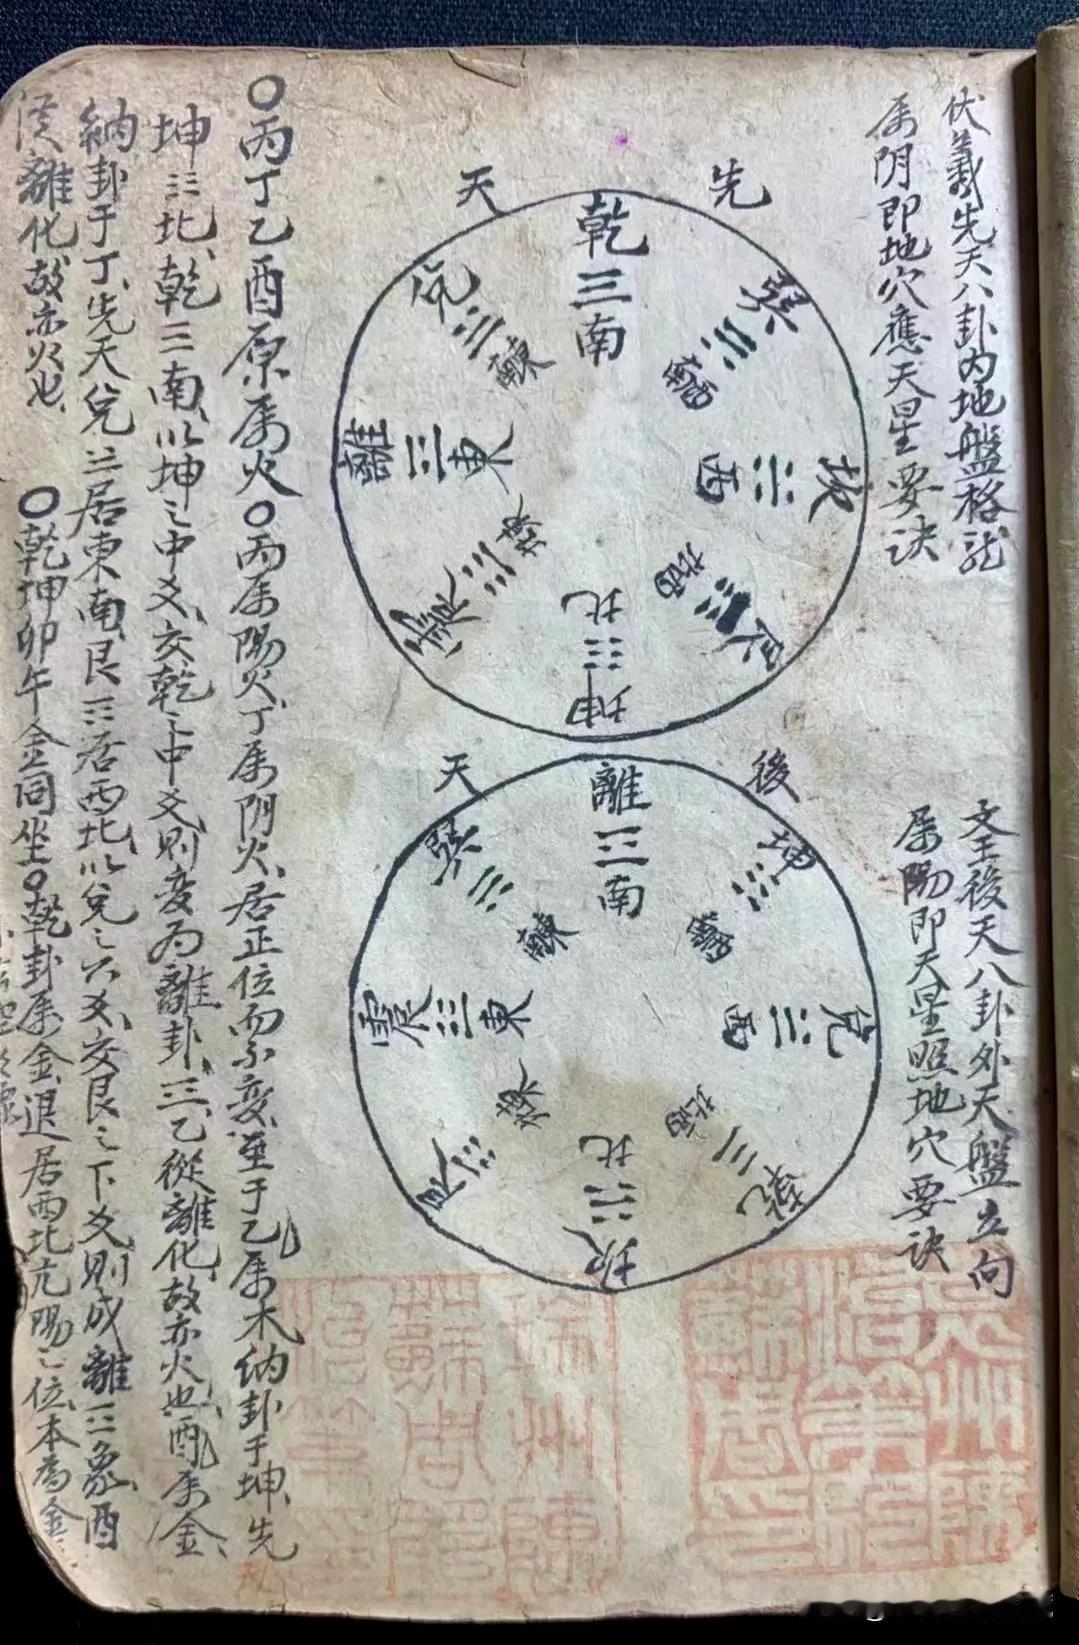 伏羲先天八卦内地盤格龙
属阴即地穴應天星要訣
文王後天八卦外天盤立向
属陽即天星照地穴要訣
先天
乾☰南
巽☴西南
坎☵西
艮☶西北
坤☷北
震☳東北
離☲東
兌☱東南
後天
離☲南
坤☷西南
兌☱西
乾☰西北
坎☵北
艮☶東北
震☳東
巽☴東南
○丙丁乙酉原属火○丙属陽火丁属阴火居正位而不变至于乙属木納卦于坤先
坤☷北乾☰南以坤之中爻交乾之中爻則变為離卦☲乙從離化故亦火也酉属金
納卦于丁先天兌☱居東南艮☶居西北以兌之六爻交艮之下爻則成離☲象酉
從離化故亦火也
○乾坤卯午金同坐○乾卦属金退居西北亢陽之位本為金